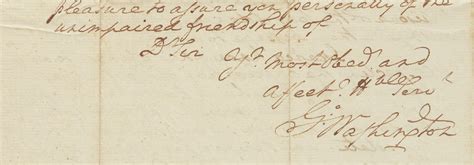 pleasure to assure you personally of the
unimpaired friendship of
Dr Sir Yr most obed. and
affect. Hble Serv
Go: Washington